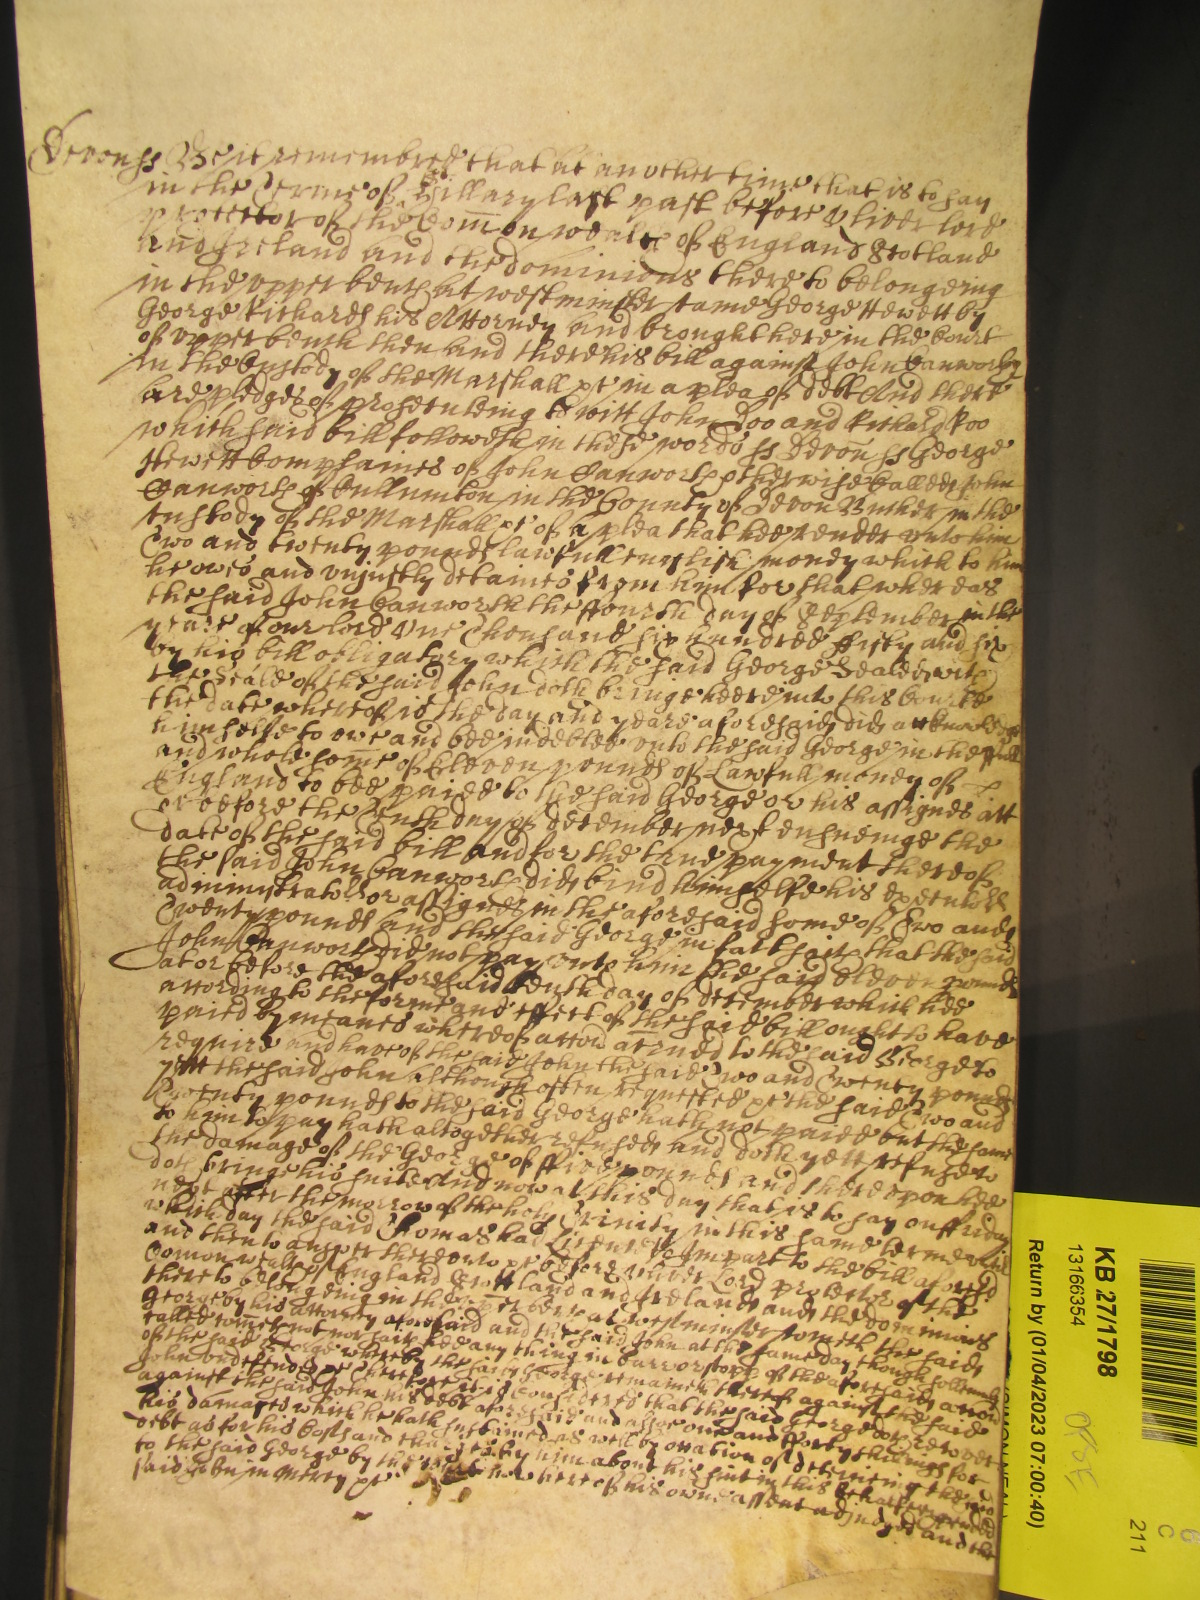 Devon ss Be it remembred that at an other time that is to say
in the Terme of St Hillary last past before Oliver lord
protector of the Com̄onwealth of England Scotland
and Ireland and the dominions thereto belongeing
in the upper bench at westminster came George Hewett by
George Richards his Attorney and brought here in the Court
of upper bench then and there his bill against John Canworthy
in the Custody of the Marshall &c in a plea of debt And there
are pledges of prosecuteing to witt John Doo and Richard Roo
which said bill followeth in these words ss Devon ss George
Hewett Complaines of John Canworth otherwise Called John
Canworth of Cullumton in the County of Devon Butcher in the
custody of the Marshall &c of a plea that hee render unto him
Two and twenty pounds lawfull english money which to him
he owes and unjustly detaines from him for that whereas
the said John Canworth the ffourth day of September in the
yeare of our lord One Thousand six hundred fifty and six
by his bill obligatory which the said George Sealed with
the Seale of the said John doth bringe heere into this Courte
the date whereof is the day and yeare aforesaid did acknowledge
himselfe to owe and bee indebted unto the said George in the full
and whole some of Eleven pounds of Lawfull money of
England to bee paied to the said George or his assignes att
or before the Tenth day of december next ensueinge the
date of the said bill and for the true payment thereof
the said John Canworth did bind himselfe his executors
administrators or assignes in the aforesaid some of Two and
Twenty pounds and the said George in fact saith that the said
John Canworth did not pay unto him the said eleven pounds
att or before the aforesaid tenth day of december which hee
according to the forme and effect of the said bill ought to have
paied by meanes whereof accon acrued to the said George to
require and have of the said John the said Two and Twenty pounds
yett the said John although often requested &c the said Two and
Twenty pounds to the said George hath not paied but the same
to him to pay hath altogether refused and doth yett refuse to
the damage of the George of ffive pounds and thereupon hee
doth bringe his suite And now at this day that is to say on ffriday
next after the morrow of the holy Trinity in this same terme until
which day the said Thomas had Licence to Imparl to the bill aforesd
and then to answer thereunto &c before Oliver Lord protector of the
Comonwealth of England Scottland and Ireland and the dominions
thereto belongeing in the upper bench at westminster cometh the said
George by his attorney aforesaid and the said John at the same day though sollemnly
called comes not nor saith hee any thing in barr or stopp of the aforesaid accon
of the said George whereby the said George remaines thereof against the said
John undefended &c Therefore it is Considered that the said George doe recover
against the said John his debt aforesaid and alsoe one and fforty shillings for
his damages which he hath sustained as well by occation of deteineing the
debt as for his Costs and charges by him about his suit in this behalfe expended
to the said George by the Court here of his owne assent adjudged and the
said John in Mercy &c
KB 27/1798
13166354
Return by (01/04/2023 07:00:40)
C
211